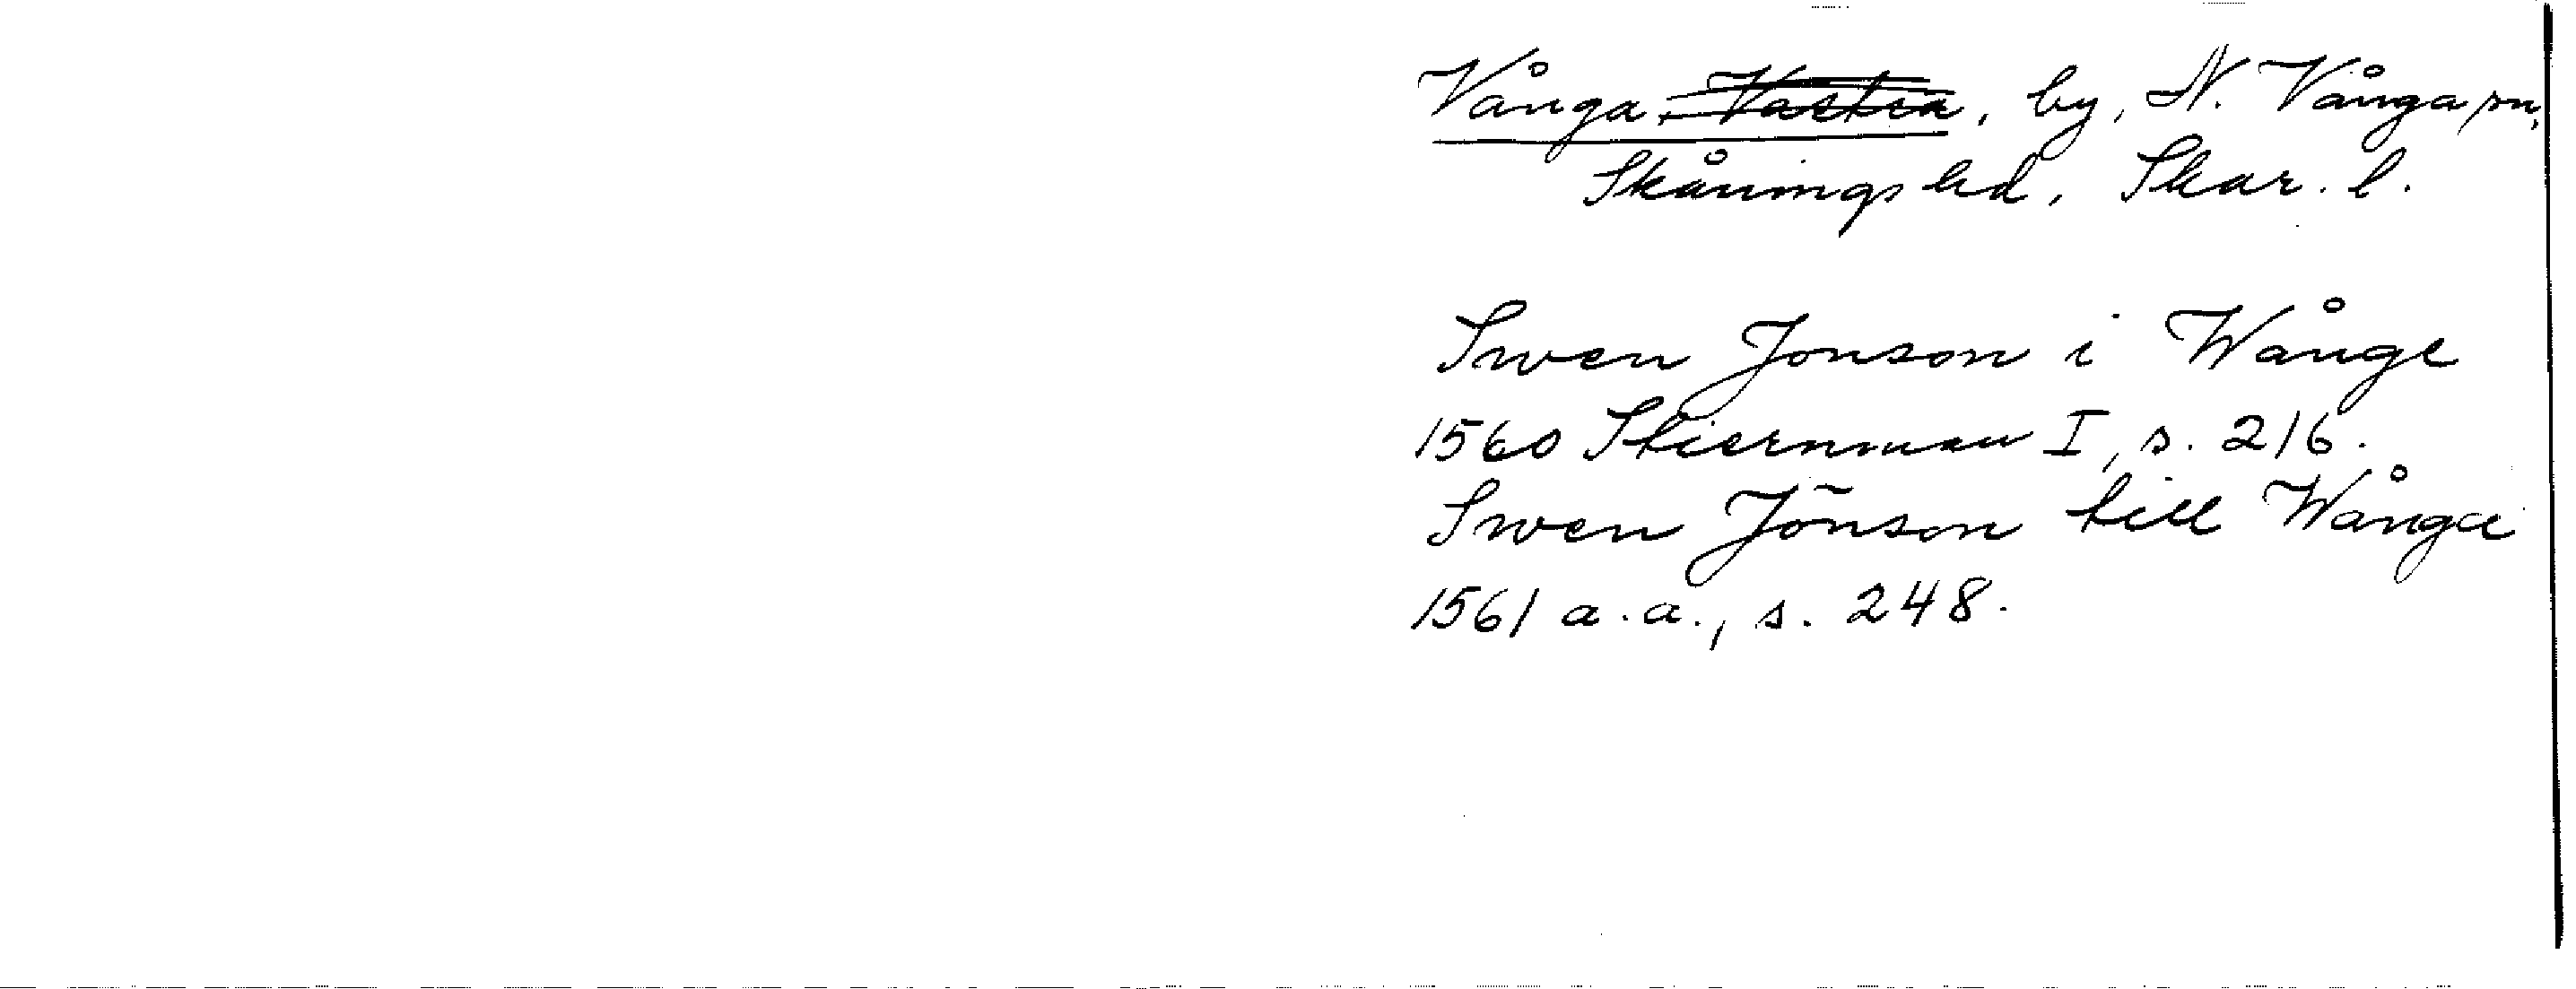 Vånga, Västra, by, N. Vånga sn,
Skånings hd, Skar. l.
Swen Jonson i Wånge
1560 Stiernman I, s. 216.
Swen Jönson till Wånga
1561 a.a., s. 248.